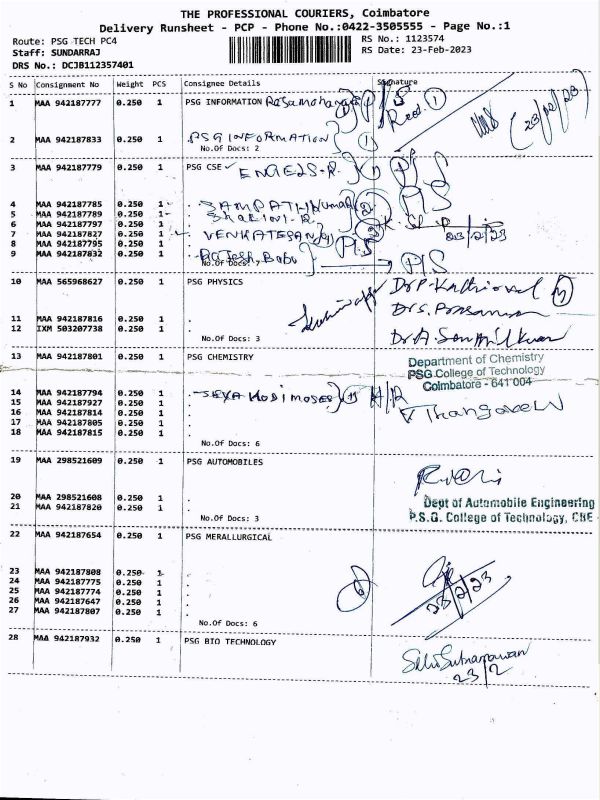 THE PROFESSIONAL COURIERS, Coimbatore
Delivery Runsheet - PCP - Phone No.:0422-3505555 - Page No.:1
Route: PSG TECH PC4 RS No.: 1123574
Staff: SUNDARRAJ RS Date: 23-Feb-2023
DRS No.: DCJB112357401
S No Consignment No Weight PCS Consignee Details Signature
1 MAA 942187777 0.250 1 PSG INFORMATION Recd. 1 23/02/23
2 MAA 942187833 0.250 1 PSG INFORMATION 1
No.Of Docs: 2
3 MAA 942187779 0.250 1 PSG CSE
4 MAA 942187785 0.250 1 . 2
5 MAA 942187789 0.250 1 .
6 MAA 942187797 0.250 1 .
7 MAA 942187827 0.250 1 . VENKATESAN 23/2/23
8 MAA 942187795 0.250 1 .
9 MAA 942187832 0.250 1 . Rajesh Babu
No.Of Docs: 7
10 MAA 565968627 0.250 1 PSG PHYSICS
11 MAA 942187816 0.250 1 .
12 IXM 503207738 0.250 1 .
No.Of Docs: 3
13 MAA 942187801 0.250 1 PSG CHEMISTRY
Department of Chemistry
PSG College of Technology
Coimbatore - 641 004
14 MAA 942187794 0.250 1 .
15 MAA 942187927 0.250 1 .
16 MAA 942187814 0.250 1 .
17 MAA 942187805 0.250 1 .
18 MAA 942187815 0.250 1 .
No.Of Docs: 6
19 MAA 298521609 0.250 1 PSG AUTOMOBILES
20 MAA 298521608 0.250 1 .
21 MAA 942187820 0.250 1 .
Dept of Automobile Engineering
No.Of Docs: 3
P.S.G. College of Technology, CBE
22 MAA 942187654 0.250 1 PSG MERALLURGICAL
23 MAA 942187808 0.250 1 .
24 MAA 942187775 0.250 1 .
25 MAA 942187774 0.250 1 .
26 MAA 942187647 0.250 1 . 6 23/2/23
27 MAA 942187807 0.250 1 .
No.Of Docs: 6
28 MAA 942187932 0.250 1 PSG BIO TECHNOLOGY
23/2